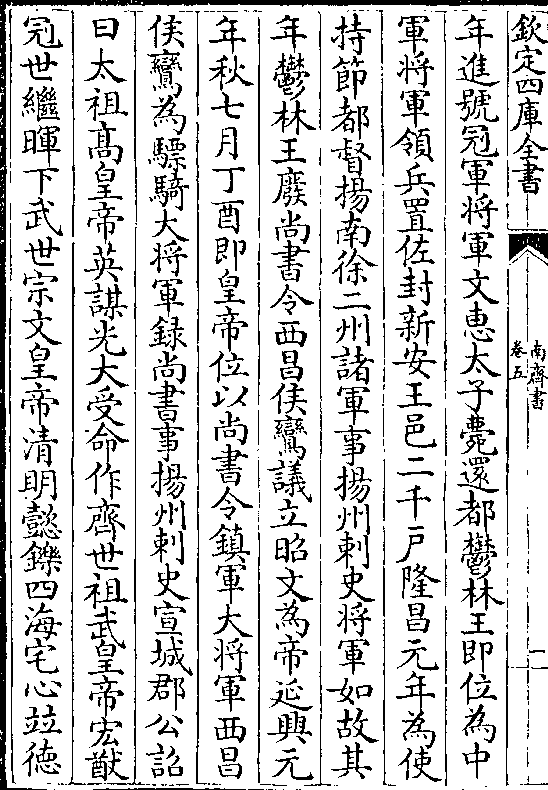 欽定四庫全書
南齊書
卷五
一
年進號冠軍将軍文惠太子薨還都鬱林王即位為中
軍将軍領兵置佐封新安王邑二千戸隆昌元年為使
持節都督揚南徐二州諸軍事揚州刺史将軍如故其
年鬱林王廢尚書令西昌侯鸞議立昭文為帝延興元
年秋七月丁酉即皇帝位以尚書令鎮軍大将軍西昌
侯鸞為驃騎大将軍録尚書事揚州刺史宣城郡公詔
曰太祖髙皇帝英謀光大受命作齊世祖武皇帝宏猷
冠世繼暉下武世宗文皇帝清明懿鑠四海宅心竝德